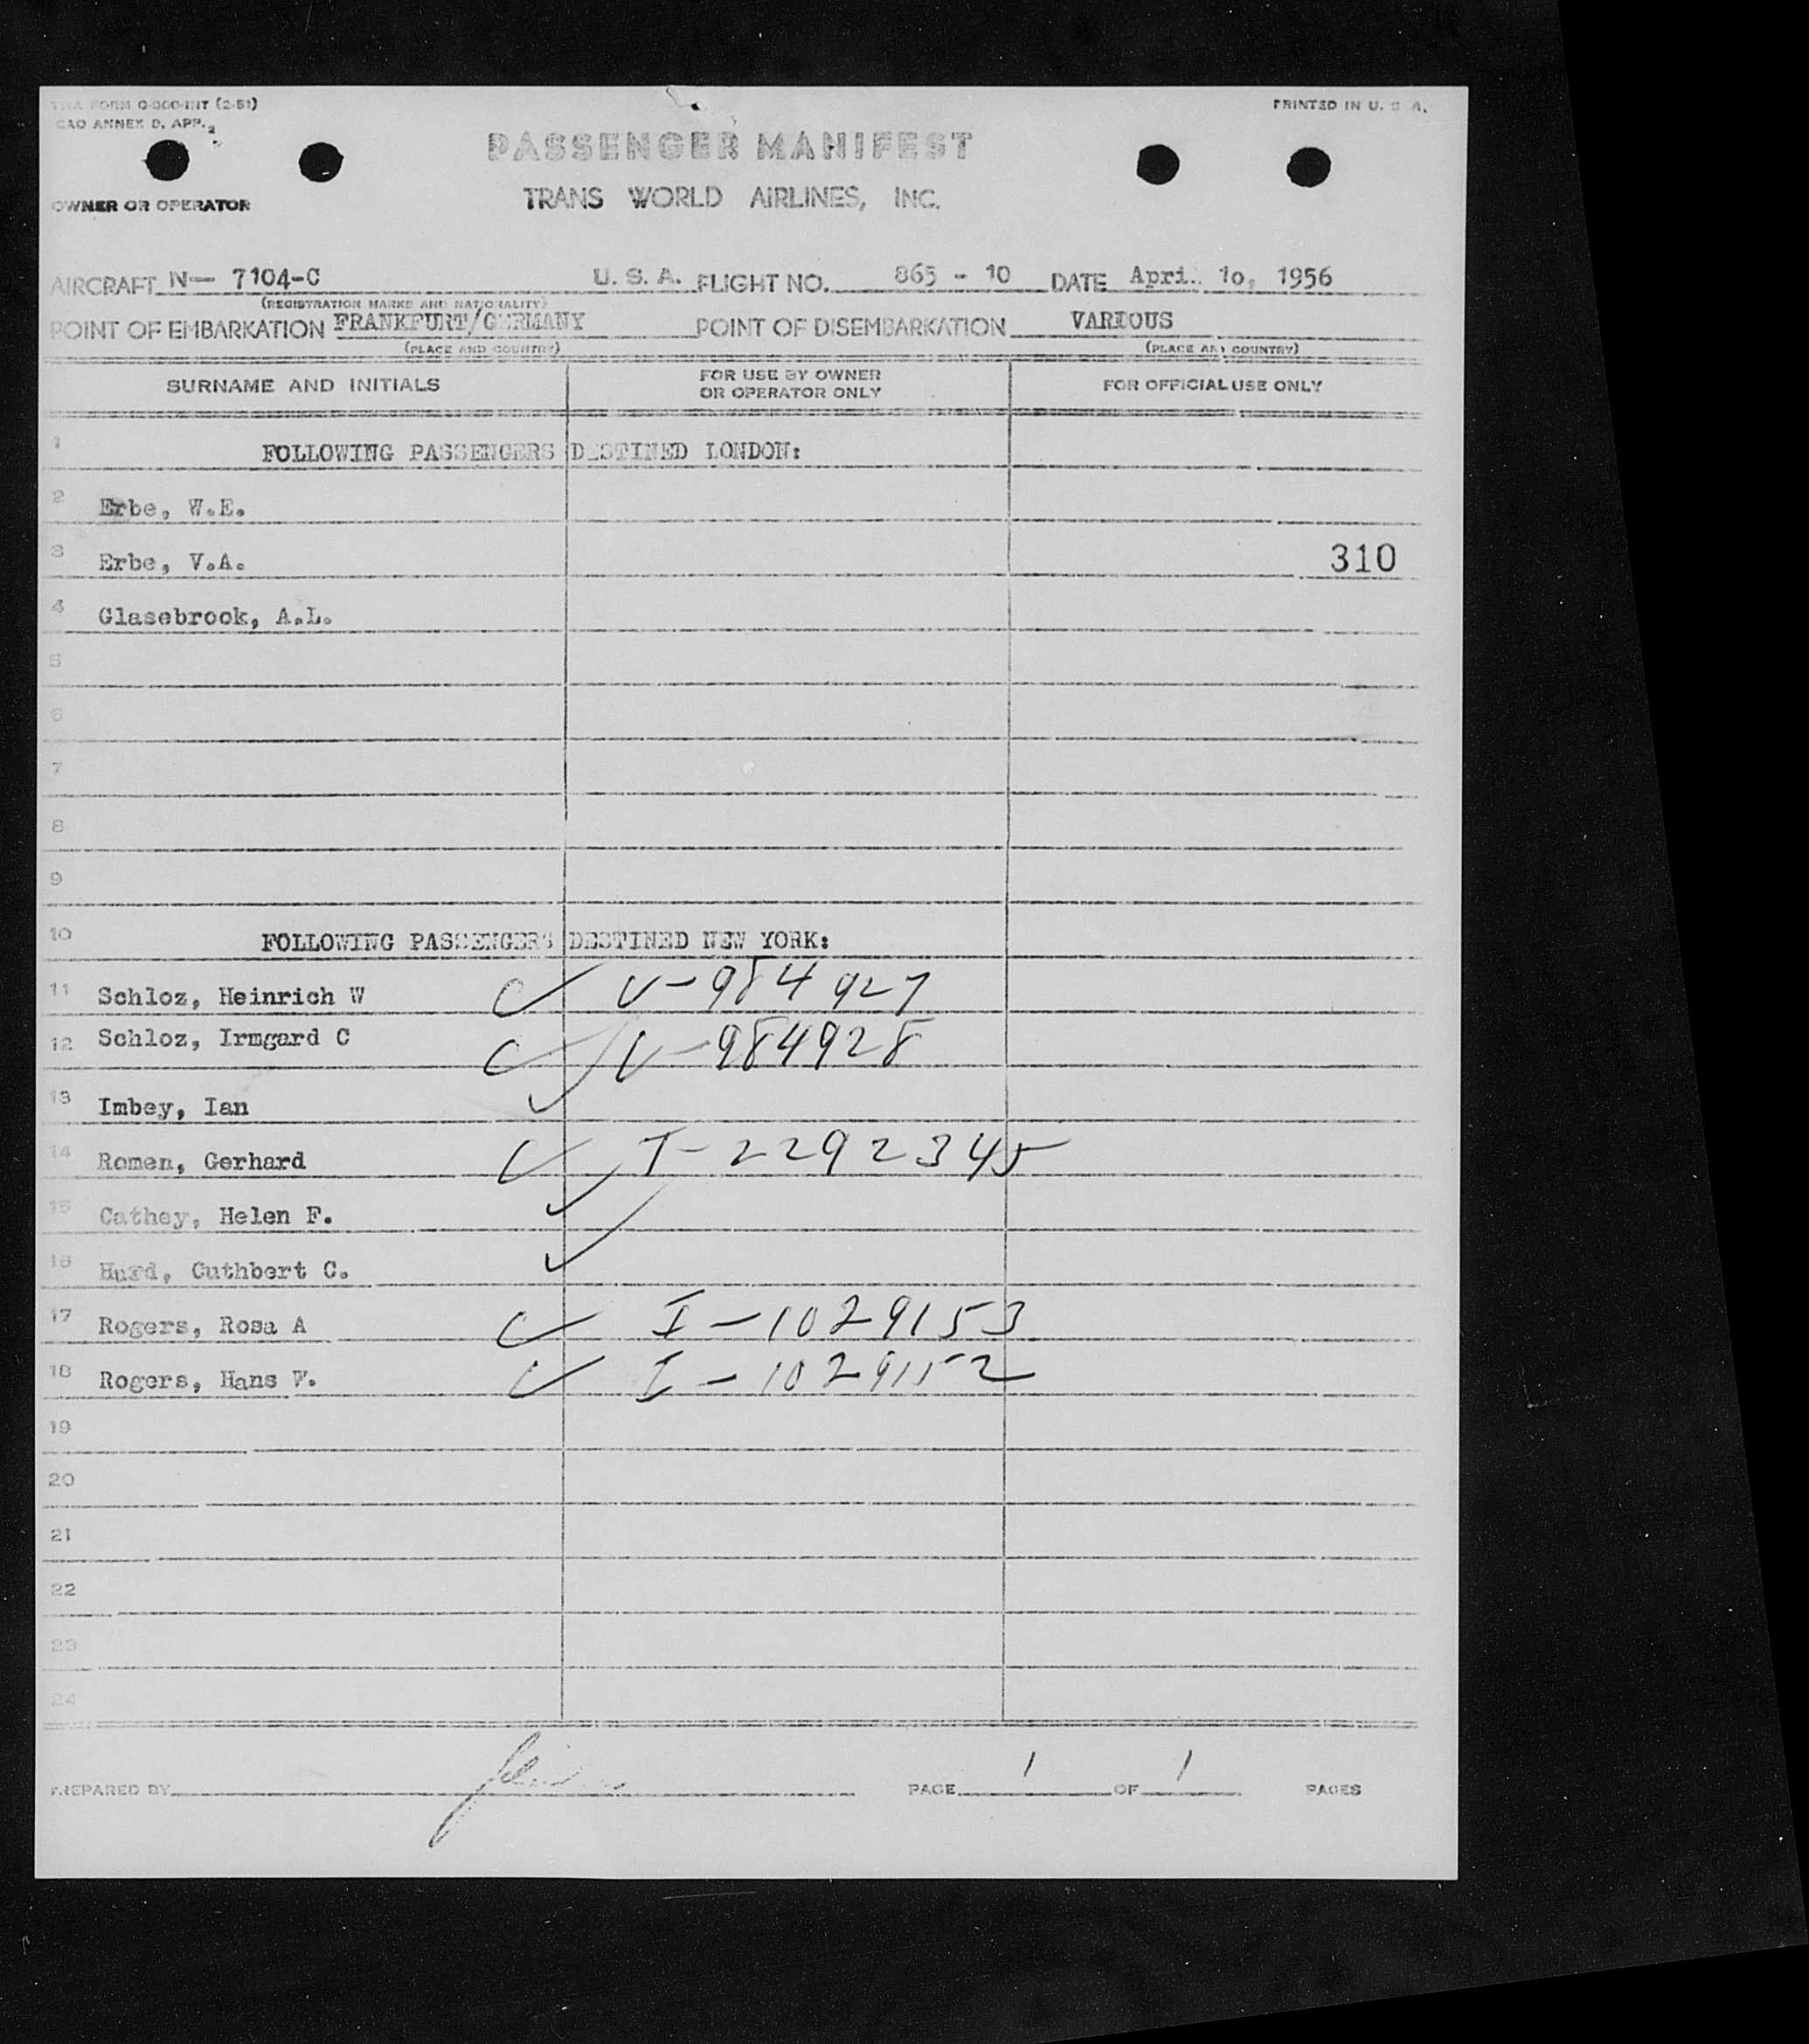 TWA FORM O-300-INT (2-51)
PRINTED IN U. S. A.
ICAO ANNEX 9, APP. 2
PASSENGER MANIFEST
OWNER OR OPERATOR
TRANS WORLD AIRLINES, INC.
AIRCRAFT N— 7104-C U. S. A. FLIGHT NO. 865 - 10 DATE April 10, 1956
(REGISTRATION MARKS AND NATIONALITY)
POINT OF EMBARKATION FRANKFURT/GERMANY POINT OF DISEMBARKATION VARIOUS
(PLACE AND COUNTRY) (PLACE AND COUNTRY)
SURNAME AND INITIALS FOR USE BY OWNER OR OPERATOR ONLY FOR OFFICIAL USE ONLY
1 FOLLOWING PASSENGERS DESTINED LONDON:
2 Erbe, W.E.
3 Erbe, V.A. 310
4 Glasebrook, A.L.
5
6
7
8
9
10 FOLLOWING PASSENGERS DESTINED NEW YORK:
11 Schloz, Heinrich W C ✓ V-984927
12 Schloz, Irmgard C C ✓ V-984928
13 Imbey, Ian ✓
14 Romen, Gerhard C ✓ I-2292345
15 Cathey, Helen F. ✓
16 Hurd, Cuthbert C. ✓
17 Rogers, Rosa A C ✓ I-1029153
18 Rogers, Hans W. C ✓ I-1029152
19
20
21
22
23
24
PREPARED BY PAGE 1 OF 1 PAGES